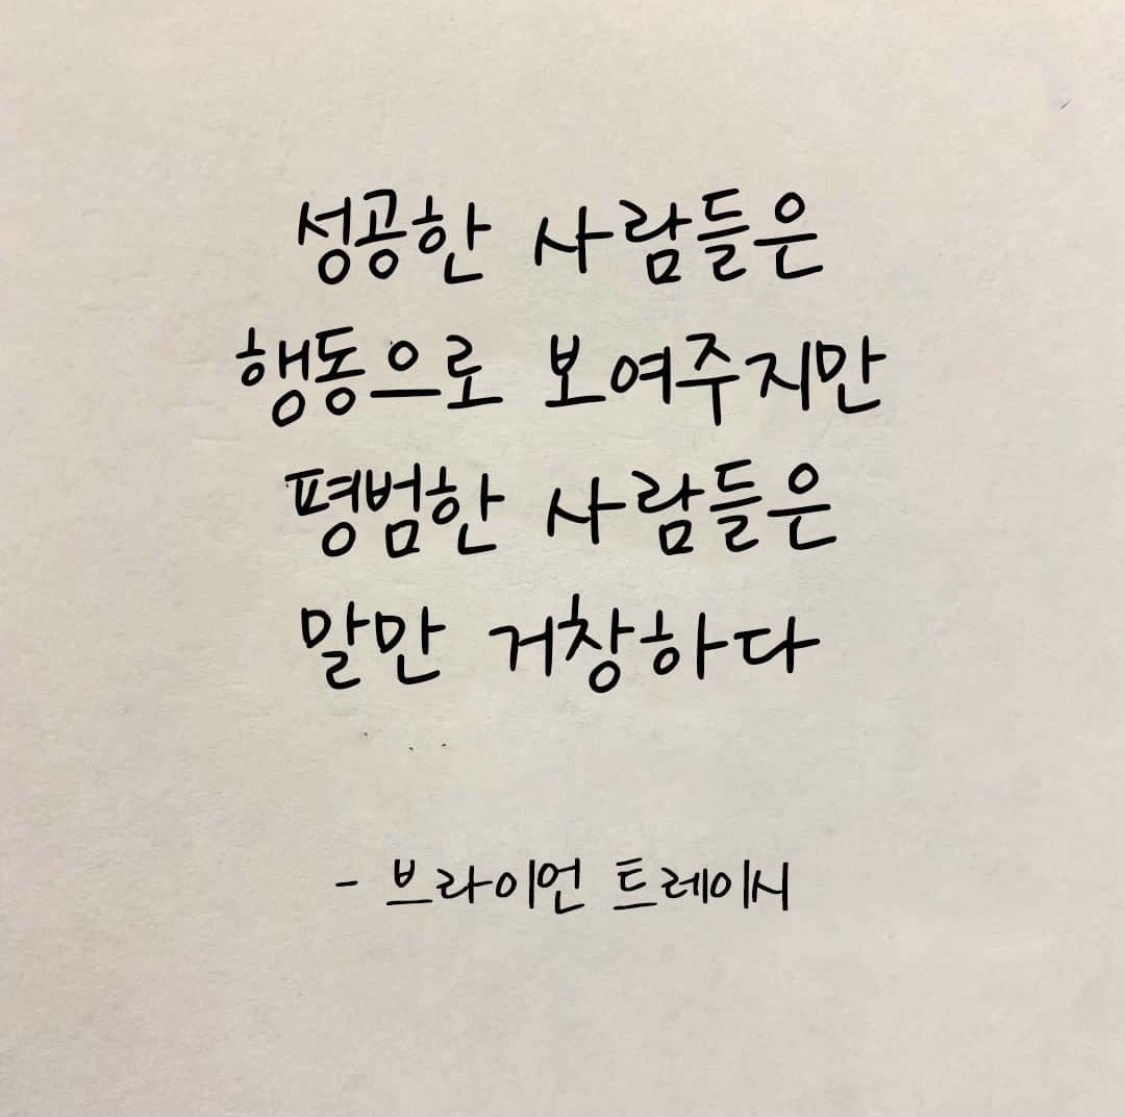 성공한 사람들은
행동으로 보여주지만
평범한 사람들은
말만 거창하다
- 브라이언 트레이시